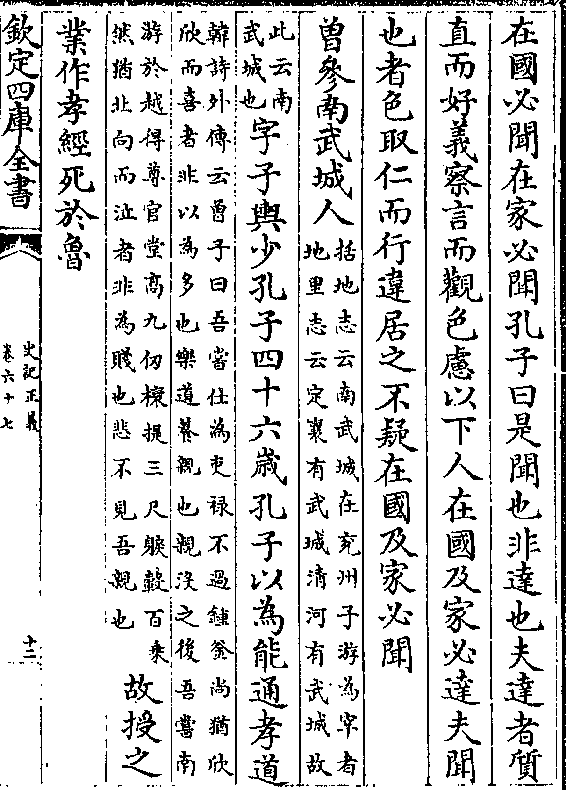 在國必聞在家必聞孔子曰是聞也非達也夫達者質
直而好義察言而觀色慮以下人在國及家必達夫聞
也者色取仁而行違居之不疑在國及家必聞
曾參南武城人
括地志云南武城在兗州子游為宰者
地里志云定襄有武城清河有武城故
此云南
武城也
字子輿少孔子四十六歲孔子以為能通孝道
韓詩外傳云曾子曰吾嘗仕為吏禄不過鍾釜尚猶欣
欣而喜者非以為多也樂道養親也親沒之後吾嘗南
游於越得尊官堂高九仞榱提三尺躬轂百乗
然猶北向而泣者非為賤也悲不見吾親也
故授之
業作孝經死於魯
欽定四庫全書
史記正義
卷六十七
十二